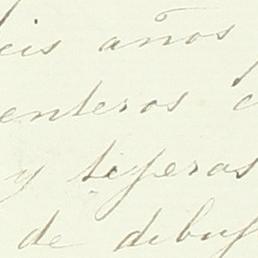 eis años
enteros
y tijeras
de dibuj